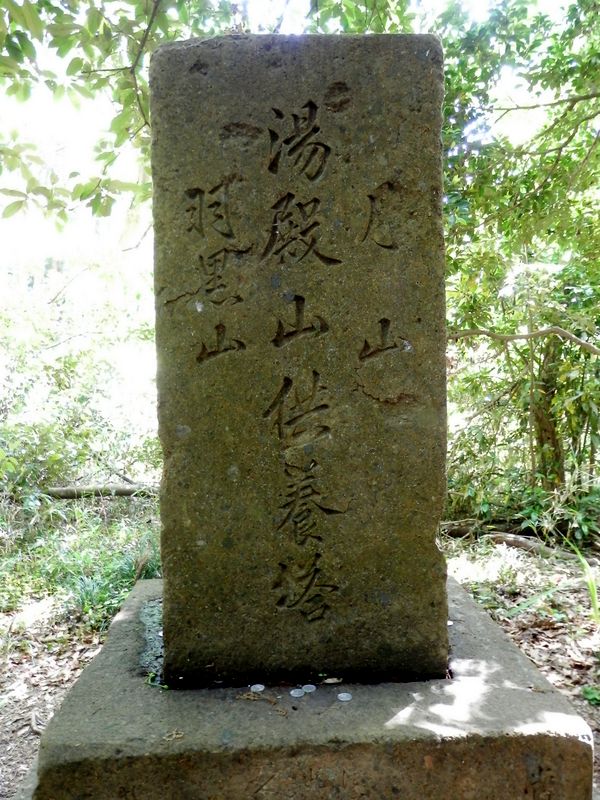 月山
湯殿山供養塔
羽黒山